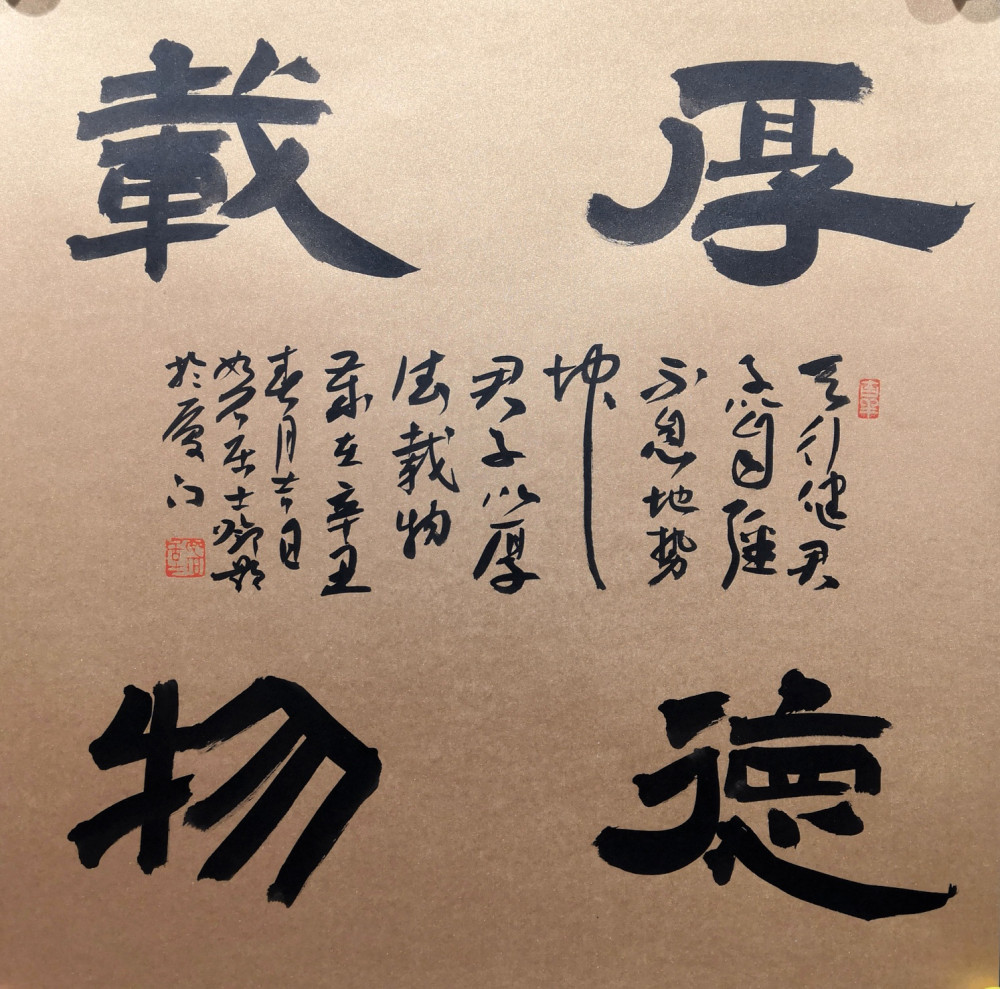 厚德
載物
天行健君
子以自強
不息地势
坤
君子以厚
德載物
歲在辛丑
春月吉日
居士鄧
於厦门